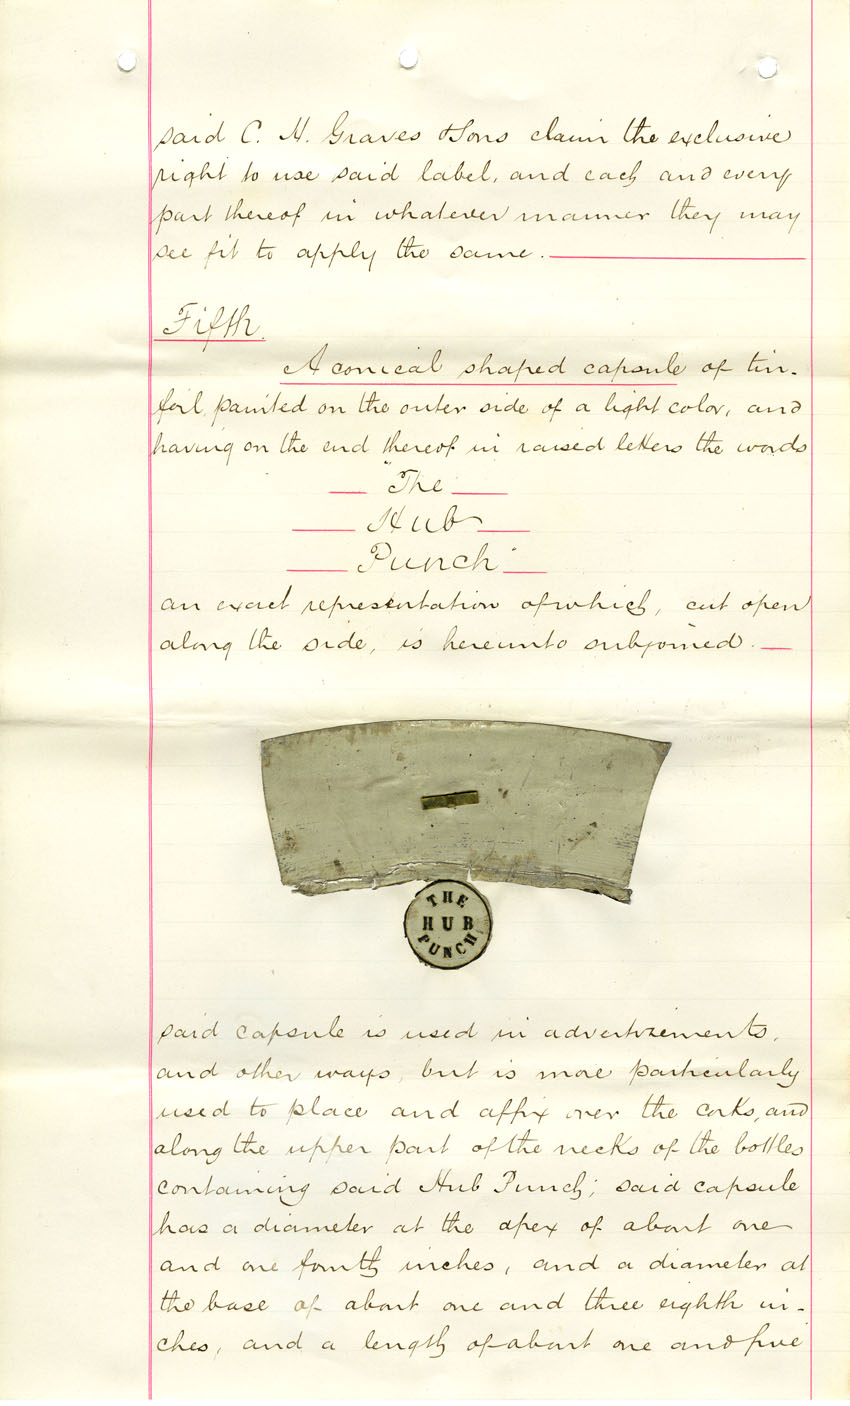 said C. H. Graves & Sons claim the exclusive
right to use said label, and each and every
part thereof in whatever manner they may
see fit to apply the same.
Fifth.
A conical shaped capsule of tin-
foil, painted on the outer side of a light color, and
having on the end thereof in raised letters the words
"The
Hub
Punch"
an exact representation of which, cut open
along the side, is hereunto subjoined.
THE
HUB
PUNCH
said capsule is used in advertizements,
and other ways, but is more particularly
used to place and affix over the corks, and
along the upper part of the necks of the bottles
containing said Hub Punch; said capsule
has a diameter at the apex of about one
and one fourth inches, and a diameter at
the base of about one and three eighth in-
ches, and a length of about one and five